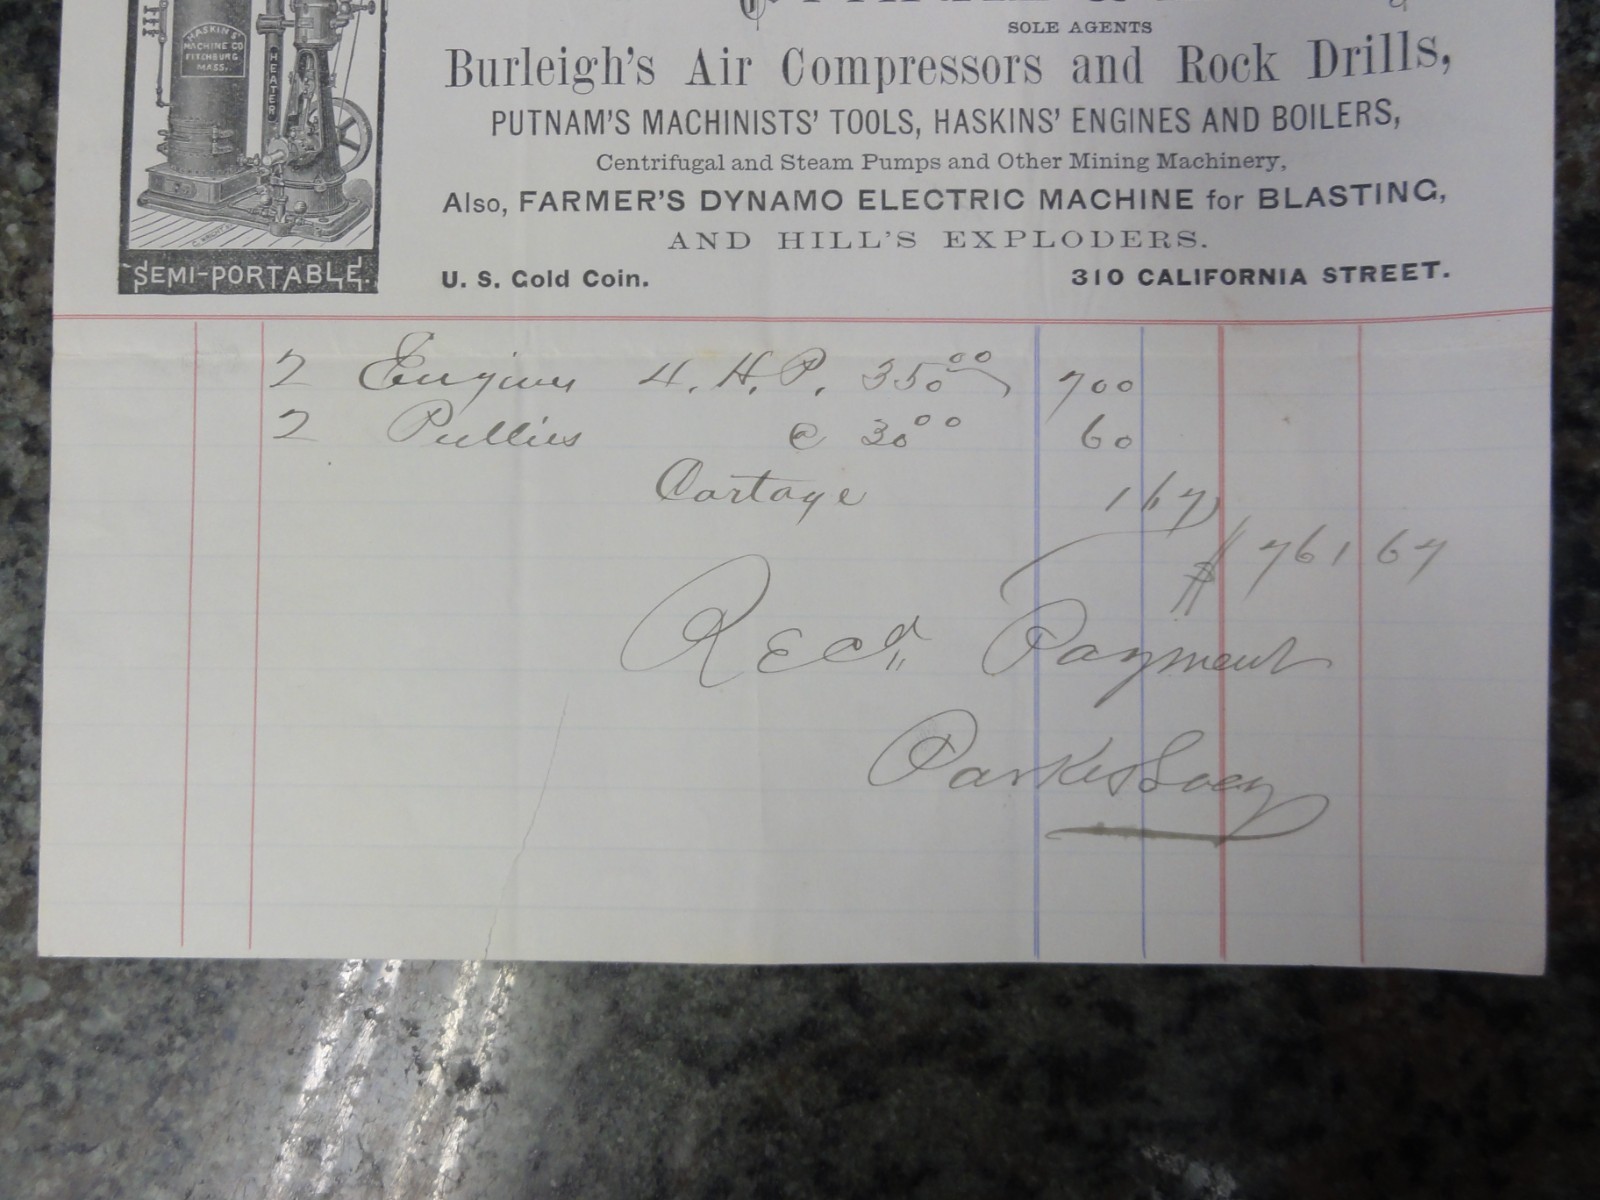 HASKINS'
MACHINE CO
FITCHBURG
MASS.
HEATER
SEMI-PORTABLE.
SOLE AGENTS
Burleigh's Air Compressors and Rock Drills,
PUTNAM'S MACHINISTS' TOOLS, HASKINS' ENGINES AND BOILERS,
Centrifugal and Steam Pumps and Other Mining Machinery,
Also, FARMER'S DYNAMO ELECTRIC MACHINE for BLASTING,
AND HILL'S EXPLODERS.
U. S. Gold Coin. 310 CALIFORNIA STREET.
2 Engines 4. H. P. 350 00 700
2 Pullies @ 30 00 60
Cartage 1 67
$ 761 67
Recd. Payment